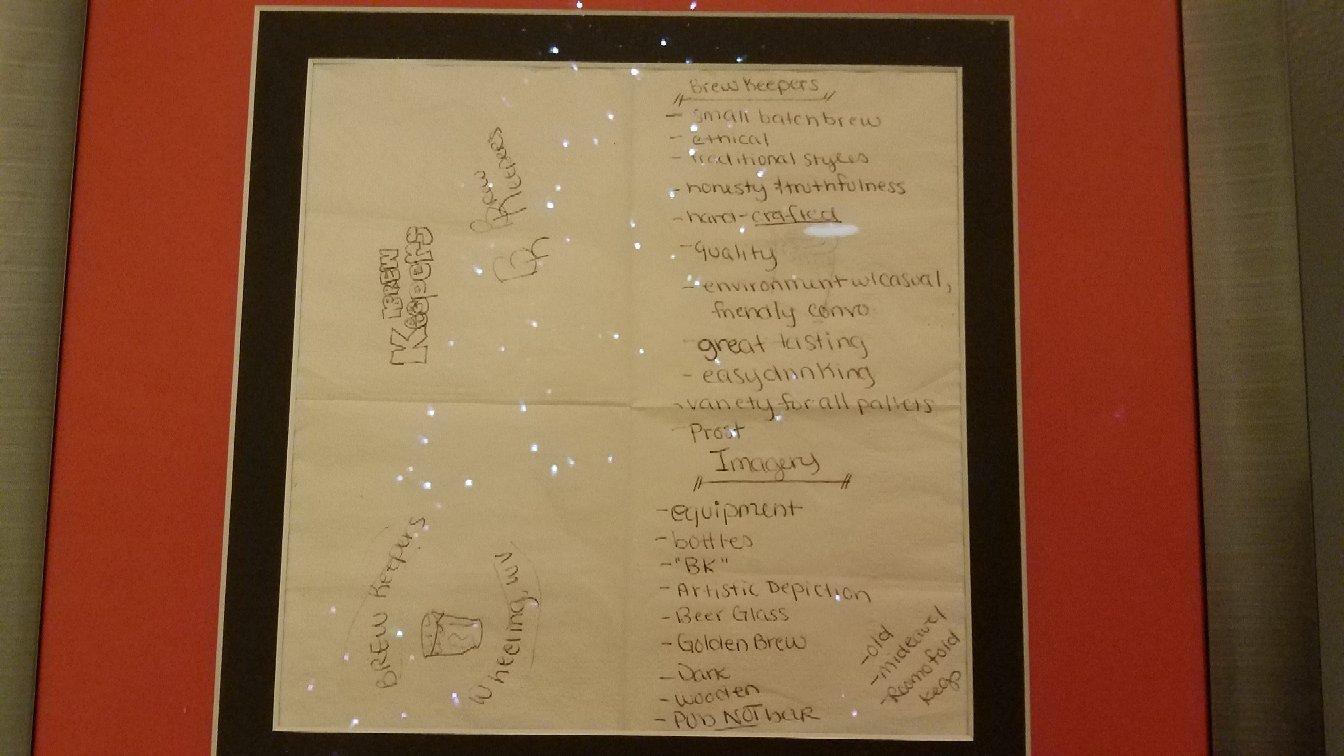 BrewKeepers
- small batch brew
- ethical
- traditional styles
- honesty & truthfulness
- hand-crafted
- Quality
- environment w/ casual,
friendly convo
great tasting
- easy drinking
- variety for all pallets
- Prost
Imagery
- equipment
- bottles
- "BK"
- Artistic Depiction
- Beer Glass
- Golden Brew
- Dark
- wooden
- PUB NOT bar
- old
- mideivel
- Room of old
kegs
BREW
Keepers
Brew
BREW Keepers
Wheeling, WV